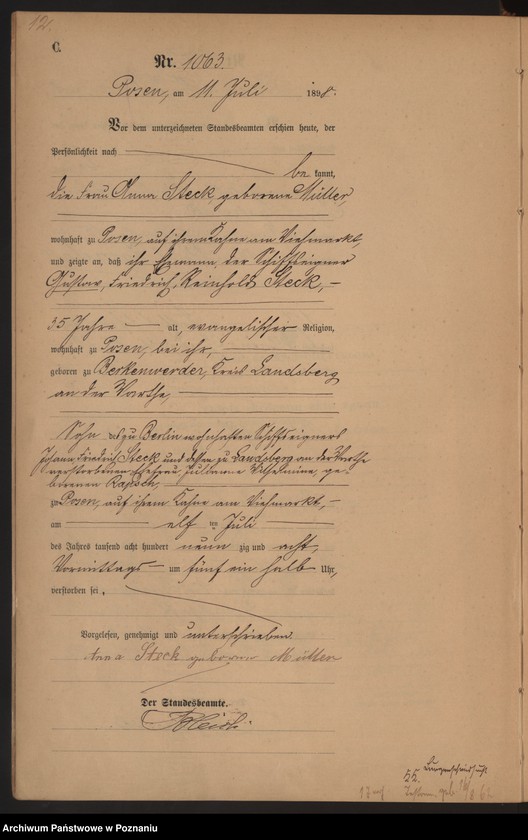 12.
C.
Nr. 1063.
Posen, am 11. Juli 1898.
Vor dem unterzeichneten Standesbeamten erschien heute, der
Persönlichkeit nach
be kannt,
die Frau Anna Steck, geborene Müller,
wohnhaft zu Posen, auf ihrem Kahne am Viehmarkt,
und zeigte an, daß ihr Ehemann, der Schiffseigner
Gustav, Friedrich, Reinhold Steck, –
35 Jahre — alt, evangelischer Religion,
wohnhaft zu Posen, bei ihr,
geboren zu Berkenwerder, Kreis Landsberg
an der Warthe,
Sohn des zu Berlin wohnhaften Schiffseigners
Johann Friedrich Steck und dessen zu Landsberg an der Warthe
verstorbenen Ehefrau, Julianne Wilhelmine, ge-
borenen
zu Posen, auf ihrem Kahne am Viehmarkt, –
am — elf ten Juli —
des Jahres tausend acht hundert neun zig und acht,
Vormittags — um fünf ein halb Uhr,
verstorben sei.
Vorgelesen, genehmigt und unterschrieben
Anna Steck geboren Müller
Der Standesbeamte.
Archiwum Państwowe w Poznaniu